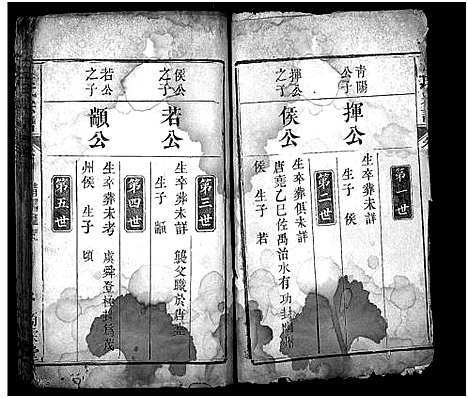 第一世
青陽
公子
揮公
生卒葬未詳
生子 侯
第二世
揮公
之子
侯公
生卒葬俱未詳
唐堯乙巳佐禹治水有功封
侯 生子 若
第三世
侯公
之子
若公
生卒葬未詳 襲父職於唐
生子 顓
第四世
若公
之子
顓公
生卒葬未考 虞舜登極
州侯 生子 頊
第五世